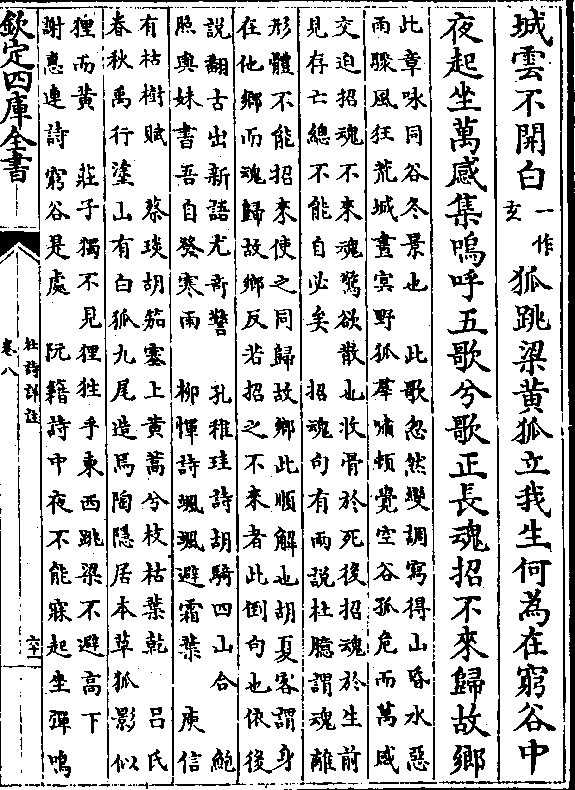 城雲不開白一作玄狐跳梁黃狐立我生何為在窮谷中
夜起坐萬感集嗚呼五歌兮歌正長魂招不來歸故鄉
此章咏同谷冬景也 此歌忽然變調寫得山昏水惡
雨驟風狂荒城晝冥野狐羣嘯頓覺空谷孤危而萬感
交迫招魂不來魂驚欲散也收骨於死後招魂於生前
見存亡總不能自必矣 招魂句有兩說杜臆謂魂離
形體不能招來使之同歸故鄉此順解也胡夏客謂身
在他鄉而魂歸故鄉反若招之不來者此倒句也依後
說翻古出新語尤奇警 孔稚珪詩胡騎四山合 鮑
照與妹書吾自發寒雨 柳惲詩颯颯避霜葉 庾信
有枯樹賦 蔡琰胡笳塞上黃蒿兮枝枯葉乾 呂氏
春秋禹行塗山有白狐九尾造焉陶隱居本草狐影似
狸而黃 莊子獨不見狸狌乎東西跳梁不避高下
謝惠連詩窮谷是處 阮籍詩中夜不能寐起坐彈鳴
欽定四庫全書
杜詩詳註
卷八
六十一